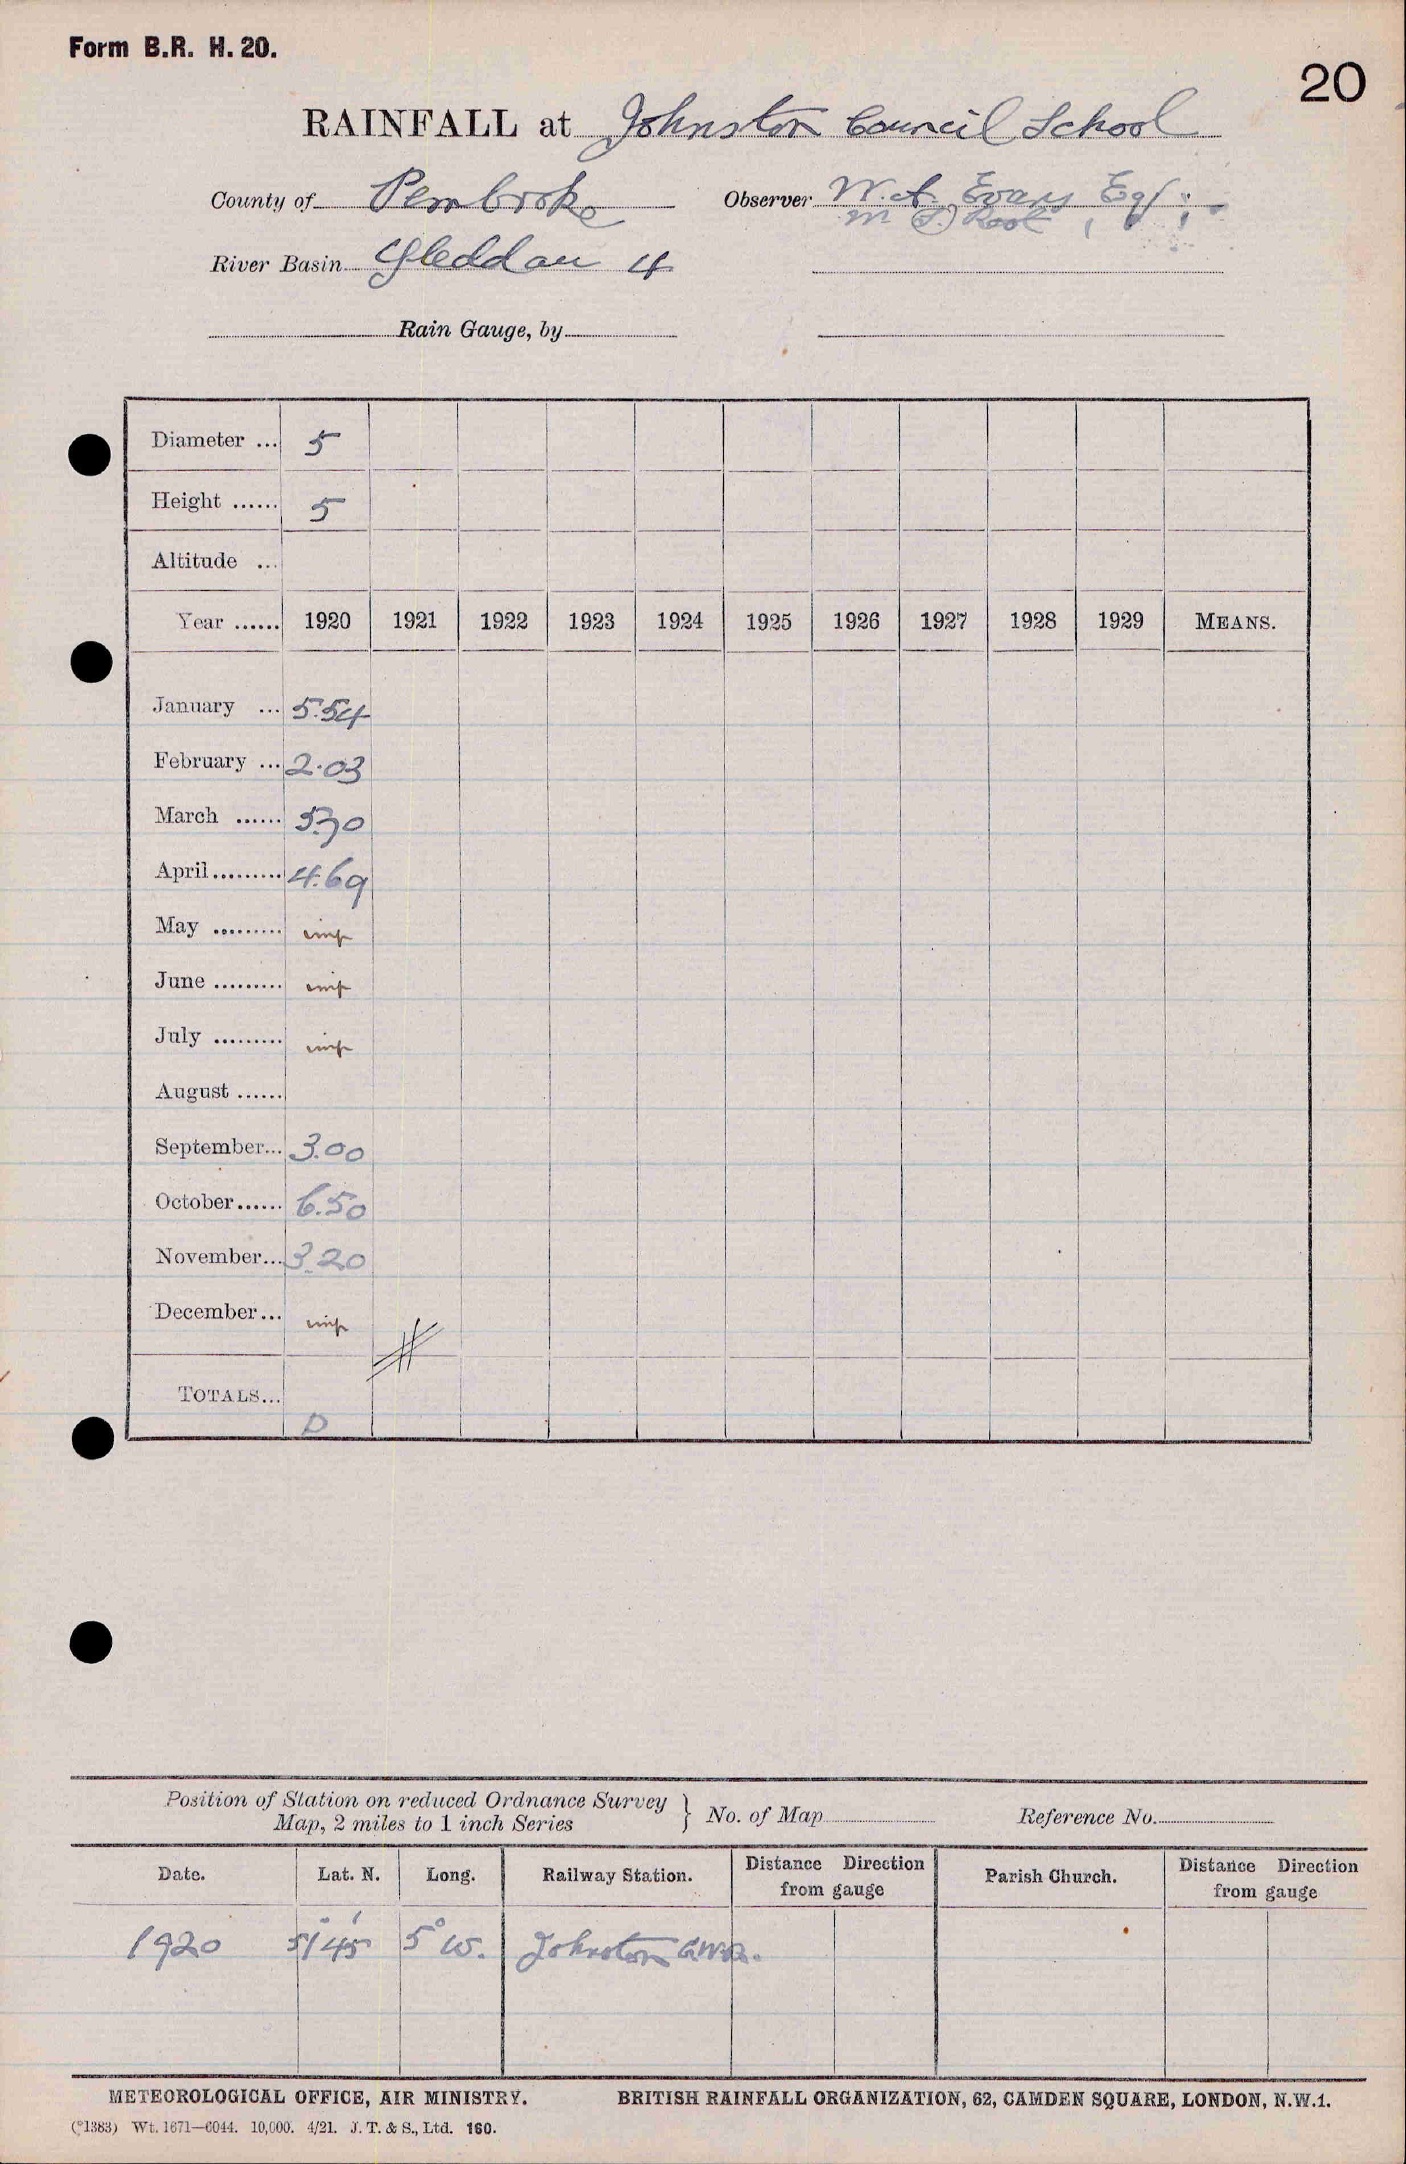 Form B.R. H. 20.
20
RAINFALL at Johnston Council School
County of Pembroke Observer W. A. Evans Esq;
M
River Basin Cleddau 4
Rain Gauge, by
Diameter ... 5
Height ...... 5
Altitude ...
Year ...... 1920 1921 1922 1923 1924 1925 1926 1927 1928 1929 MEANS.
January ... 5.54
February ... 2.03
March ...... 5.70
April......... 4.69
May ......... imp
June ......... imp
July ......... imp
August ......
September... 3.00
October...... 6.50
November... 3.20
December... imp
TOTALS...
D
Position of Station on reduced Ordnance Survey
Map, 2 miles to 1 inch Series } No. of Map Reference No.
Date. Lat. N. Long. Railway Station. Distance Direction from gauge Parish Church. Distance Direction from gauge
1920 51° 45' 5° W. Johnston G.W.R.
METEOROLOGICAL OFFICE, AIR MINISTRY. BRITISH RAINFALL ORGANIZATION, 62, CAMDEN SQUARE, LONDON, N.W.1.
(*1383) Wt. 1671—6044. 10,000. 4/21. J. T. & S., Ltd. 160.